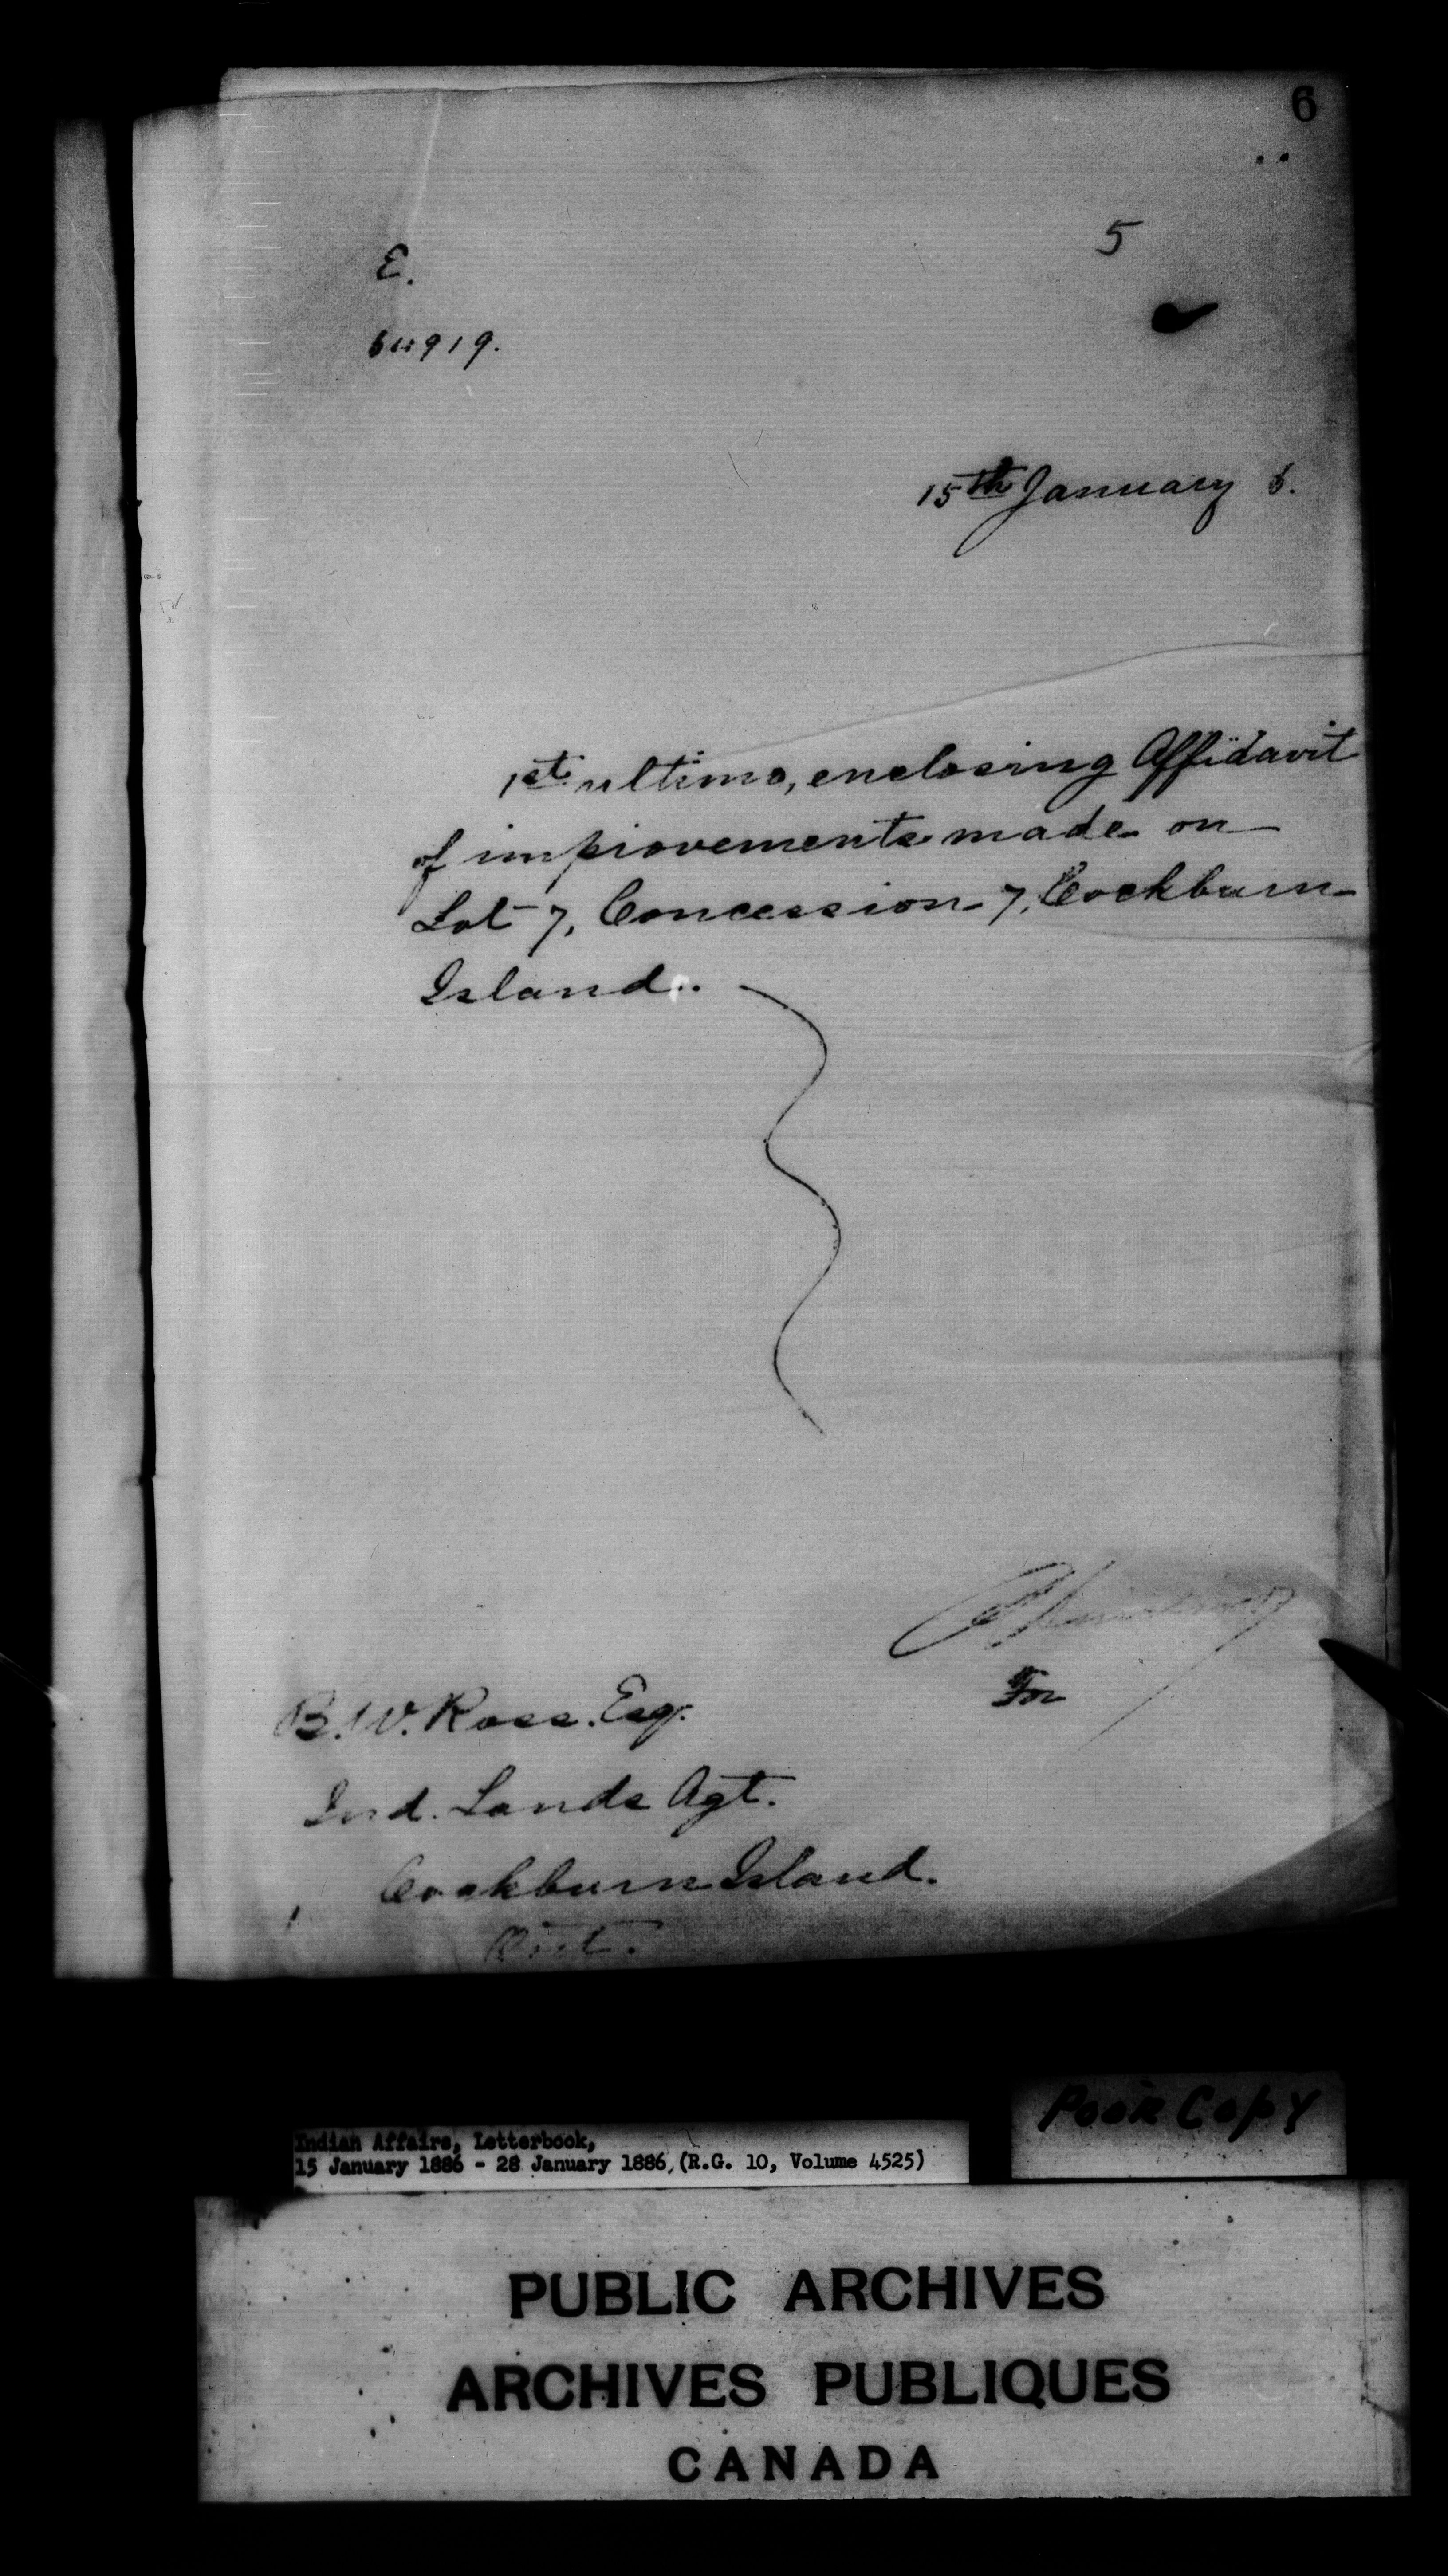 6
5
E.
64919.
15th January 6.
1st ultimo, enclosing Affidavit
of improvements made on
Lot 7, Concession 7, Cockburn
Island.
For
B. W. Ross. Esq.
Ind. Lands Agt.
Cockburn Island.
Ont.
Poor Copy
Indian Affairs, Letterbook,
15 January 1886 - 28 January 1886, (R.G. 10, Volume 4525)
PUBLIC ARCHIVES
ARCHIVES PUBLIQUES
CANADA